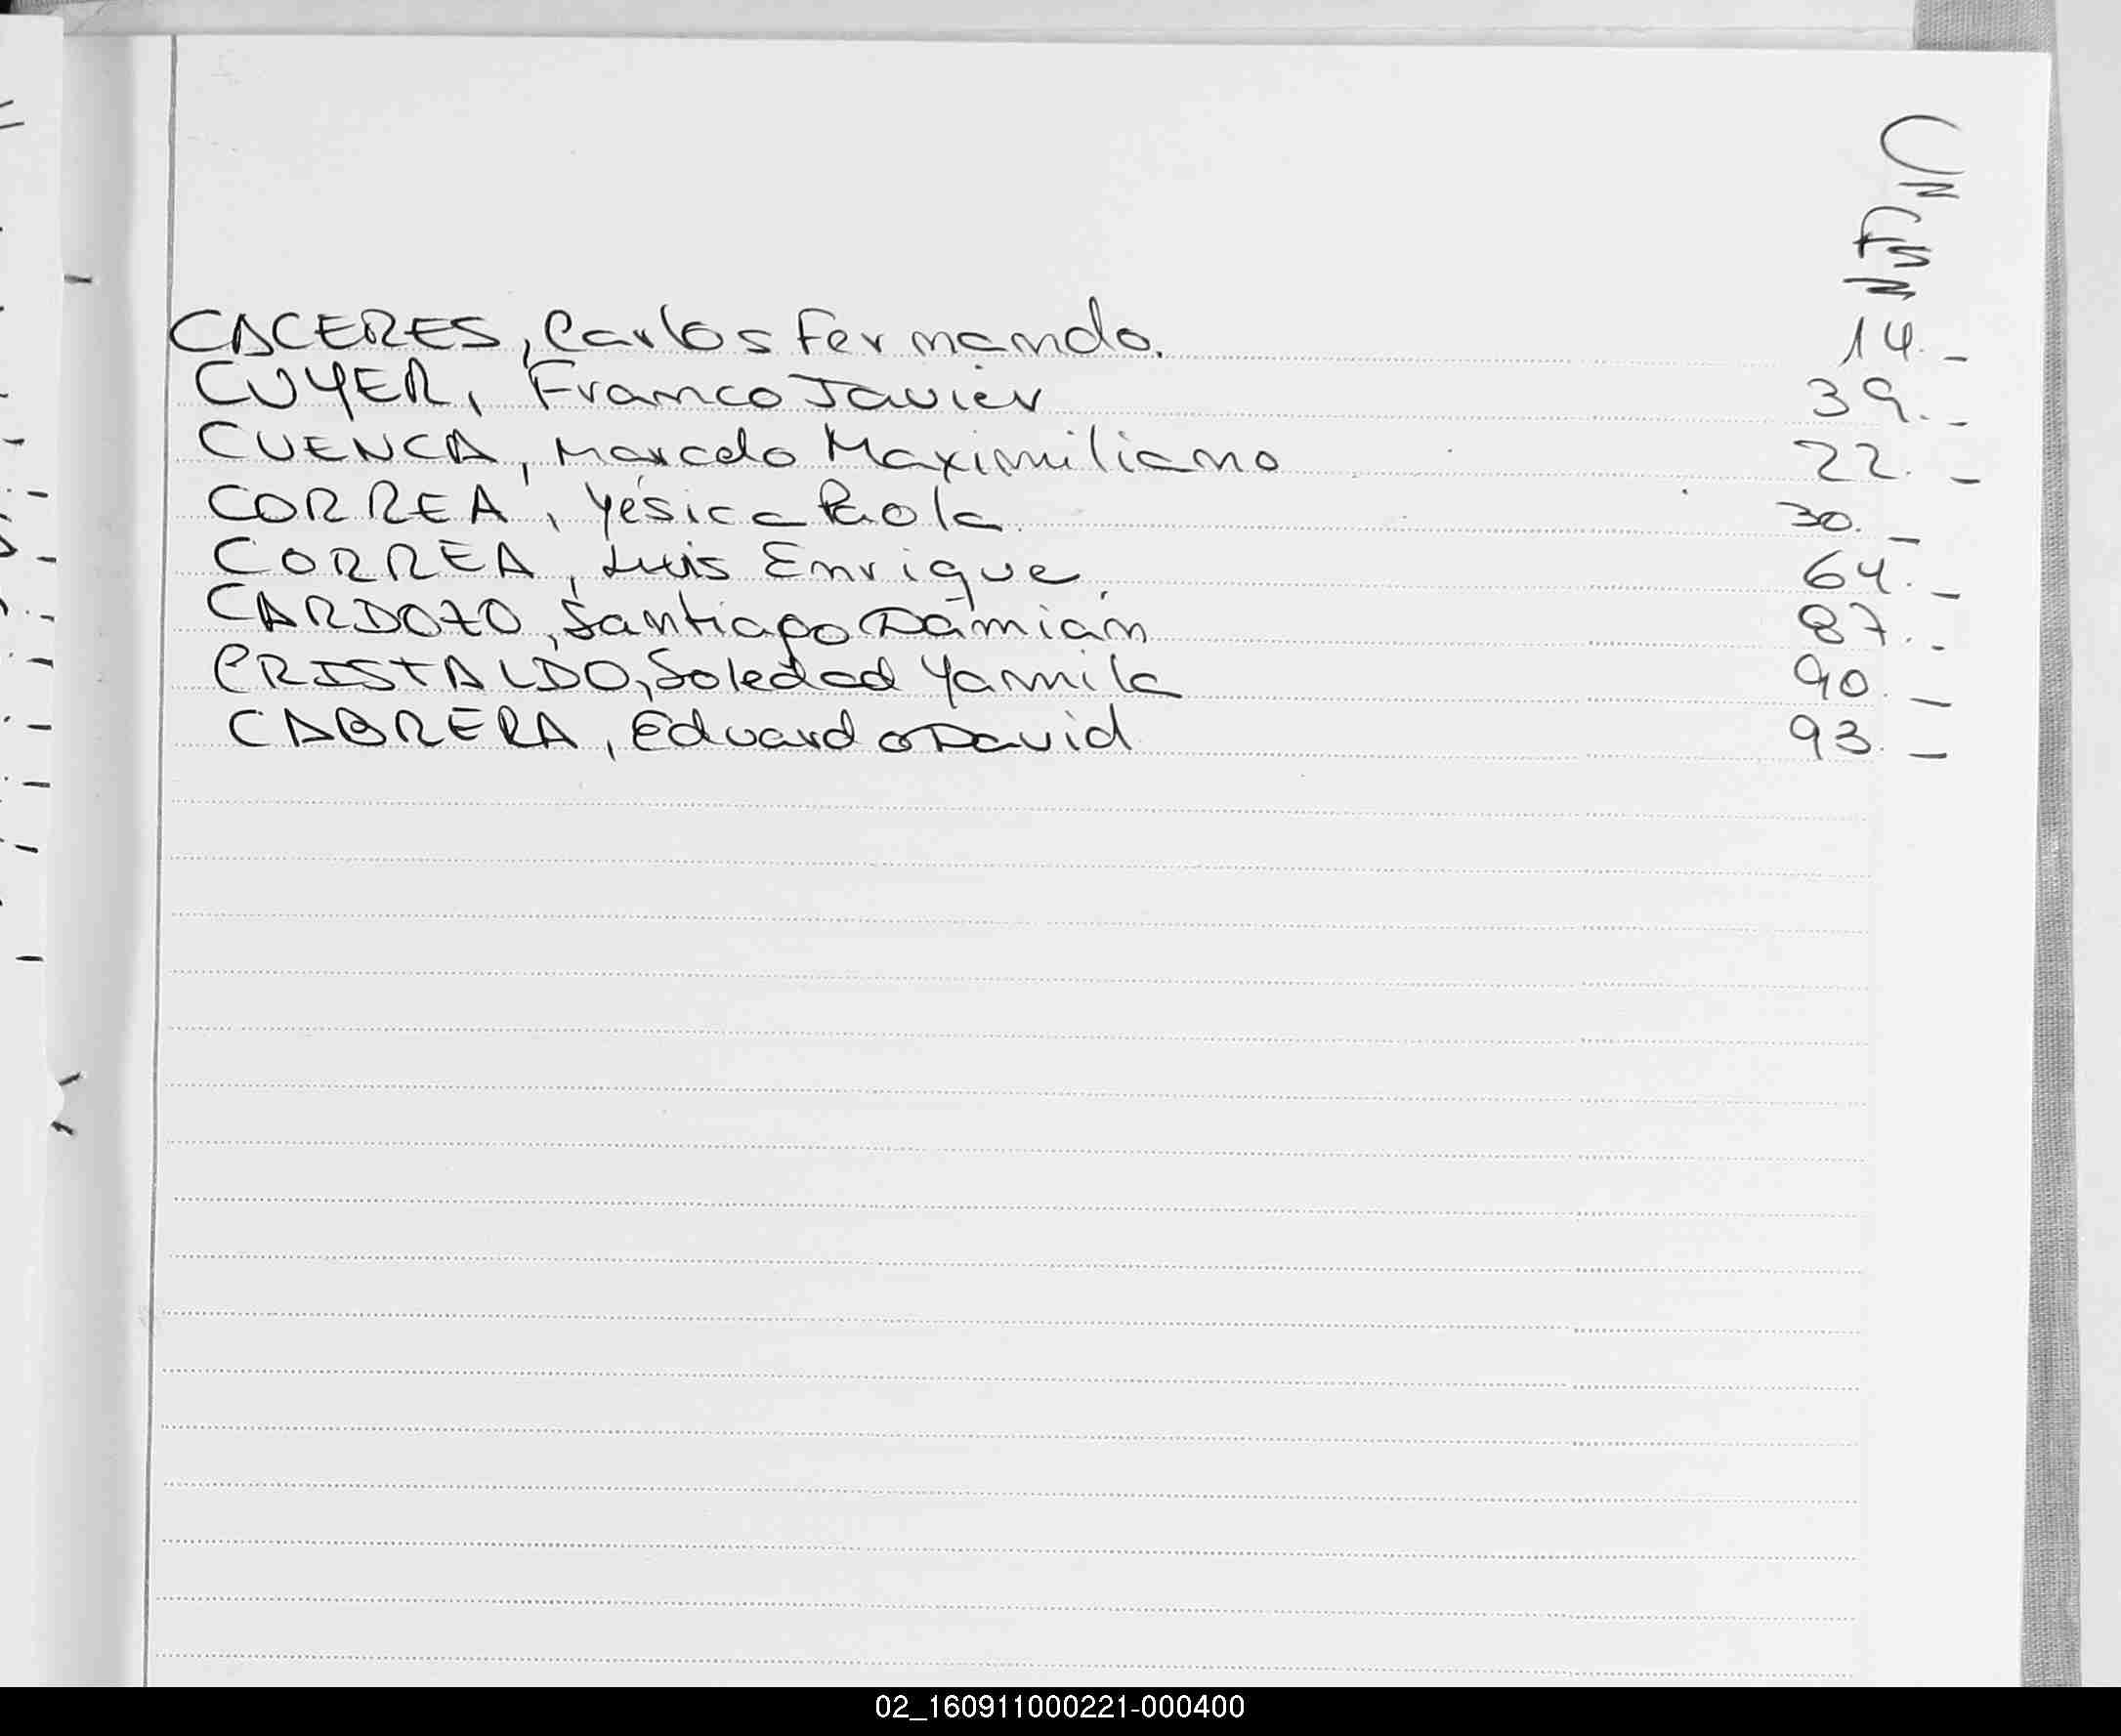 C
CACERES, Carlos Fernando. 14.-
CUYER, Franco Javier 39.-
CUENCA, Marcelo Maximiliano 22.-
CORREA, Yésica Paola 30.-
CORREA, Luis Enrique. 64.-
CARDOZO, Santiago Damián 87.-
CRISTALDO, Soledad Yamila 90.-
CABRERA, Eduardo David 93.-
02_160911000221-000400